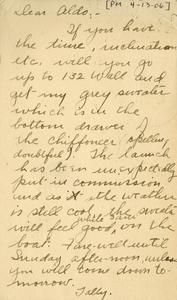 Dear Aldo:- [PM 4-13-06]
If you have
the time, inclination
etc. will you go
up to 132 Wall and
get my grey sweater
which is in the
bottom drawer of
the chiffoneer (spelling
doubtful). The launch
has been unexpectedly
put in commission
and as the weather
is still cool the sweater
will feel good, on the
boat. Fare-well until
Sunday after-noon, unless
you will come down to-
morrow.